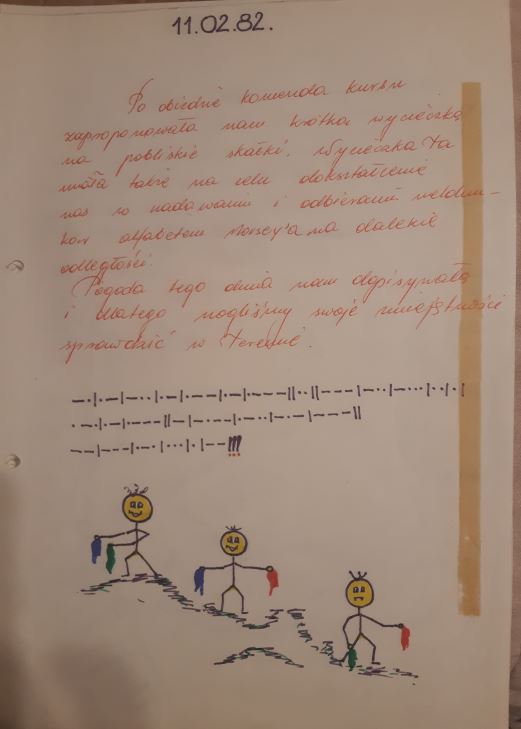 11.02.82.
Po obiedzie komenda kursu
zaproponowała nam krótką wycieczkę
na pobliskie skałki. Wycieczka ta
miała także na celu dokształcenie
nas w nadawaniu i odbieraniu meldun-
ków alfabetem Morsey'a na dalekie
odległości.
Pogoda tego dnia nam dopisywała
i dlatego mogliśmy swoje umiejętności
sprawdzić w terenie.